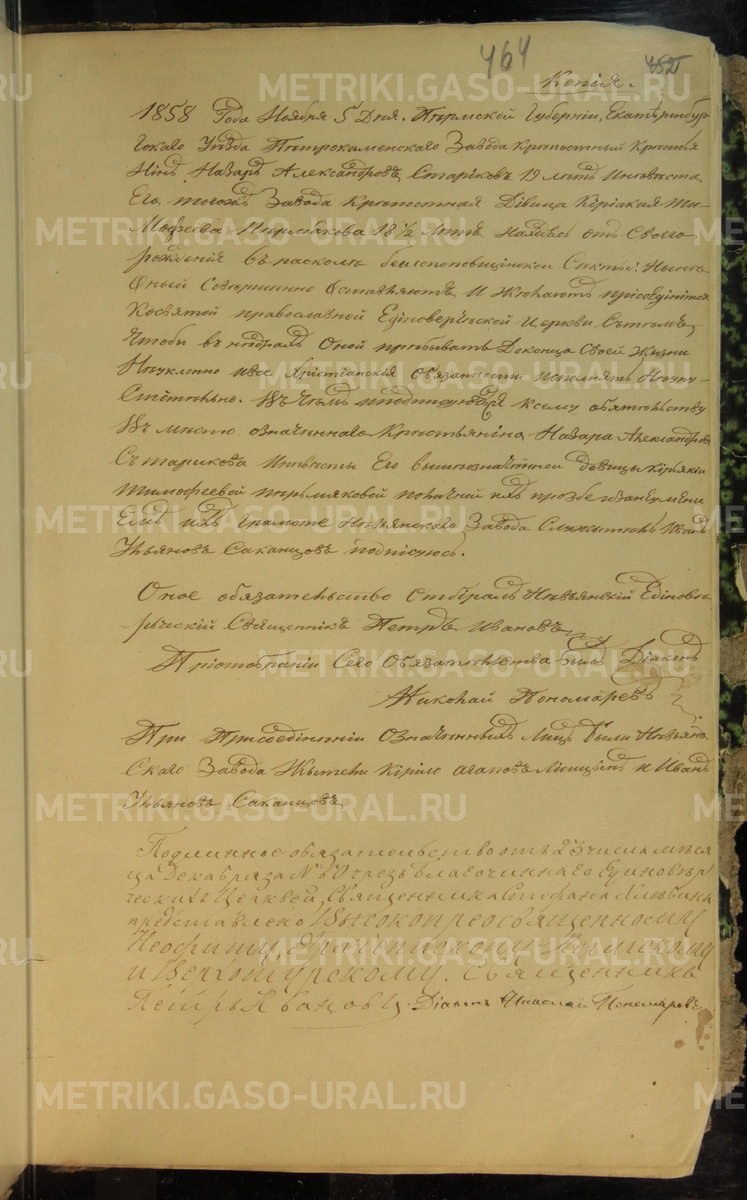 464
452
Копія.
1858 Года Ноября 5 Дня. Пермской Губерніи, Екатеринбур
гскаго Уезда Петрокаменскаго Завода Крепостный Крестья
нинъ Назаръ Александровъ Стариковъ 19 летъ Иневеста
Его тогожъ Завода Крепостная Девица Кирiакия Ти
Мофеева Пермякова 18 1/2 Летъ Находясь отъ Своего
рождения Въ расколе беспоповщинской Секты: Ныне
Оный Совершенно Оставляютъ И Желаютъ присоединится
Косвятой православной Единоверческой Церкви Стемъ,
Чтобы въ недрахъ Оной пребывать Доконца Своей Жизни
Неуклонно ивсе Христианския Обязанности исполнять
Въ Чемъ Ксему обятельству
Въ Место означеннаго Крестьянина Назара Александрова
Старикова Иневесты Его вышеозначенной девицы Кирякии
Тимофеевой пермяковой поличной ихъ прозбе
ихъ Грамоте Невьянскаго Завода Служитель Иванъ
Ульяновъ Саканцовъ подписуюсь.
Оное обязательство Отбиралъ Невьянский Единове
рческий Священникъ Петръ Ивановъ
Приотобрании Сего Обязательства былъ Диаконъ
Николай Пономаревъ
При Присоединении Означенныхъ Лицъ были Невьян
Скаго Завода Жители Кирило Агаповъ и Иванъ
Ульяновъ Саканцовъ
Подлинное обязательство отъ 23 числа меся
ца Декабря за № чрезъ благочиннаго Единовер
ческихъ Церквей, Священника Стефана
представлено Высокопреосвященному
Неофиту, Архиепископу Пермскому
и Верхотурскому. Священникъ
Петръ Ивановъ. Дiаконъ Николай Пономаревъ
METRIKI.GASO-URAL.RU